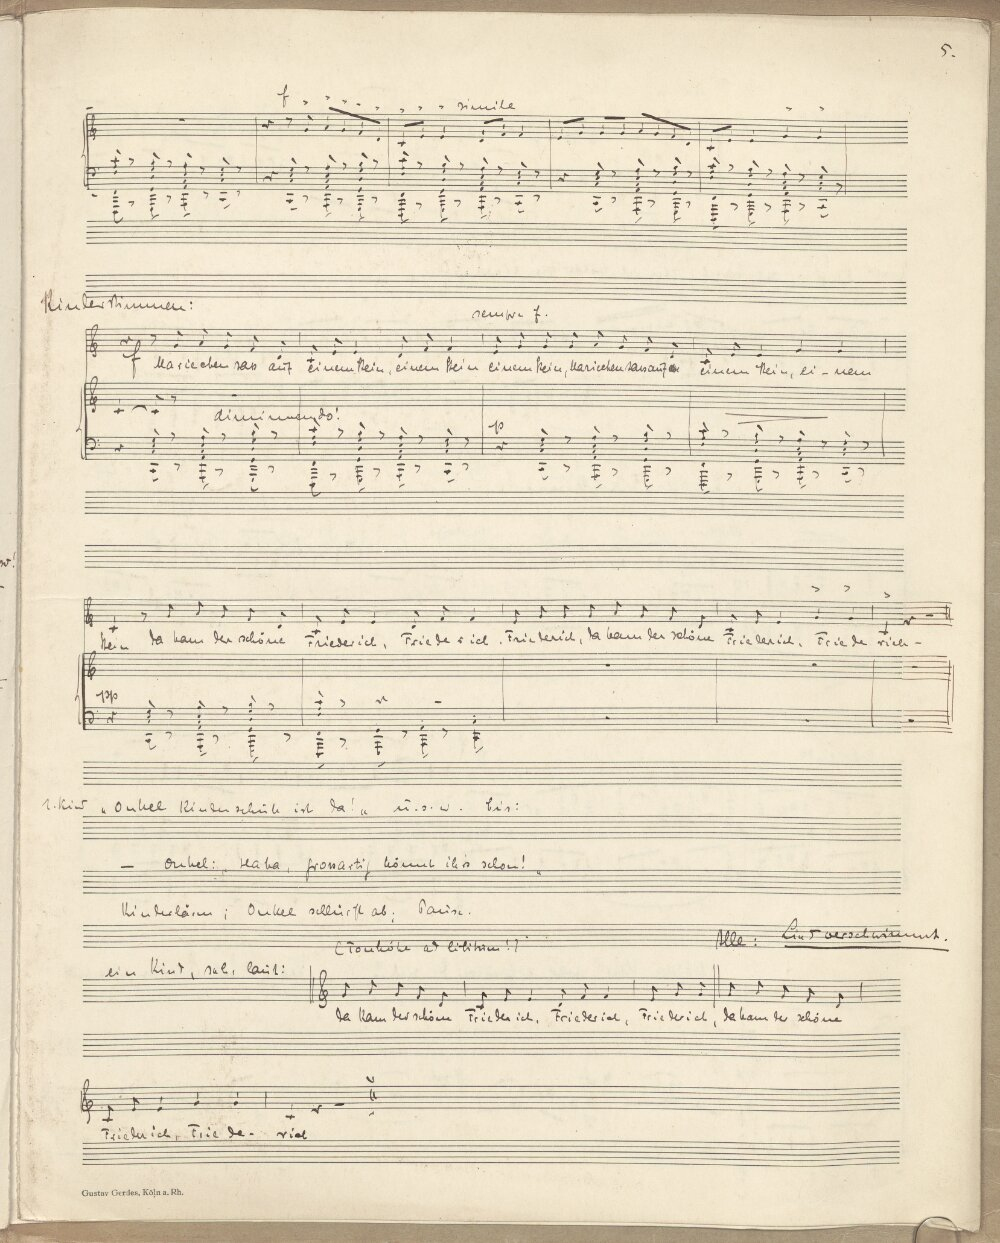 5.
f simile
Kinderstimmen:
sempre f.
f Mariechen sass auf einem Stein, einem Stein einem Stein, Mariechen sass auf einem Stein, ei - nem
diminuendo!
p
Stein da kam der schöne Friederich, Friederich, Friederich, da kam der schöne Friederich, Friede rich -
ppp
1. Kind „Onkel Kinderschük ist da!" u.s.w. bis:
— Onkel: „Haha, grossartig könnt ihr's schon!"
Kinderlärm; Onkel schlürft ab; Pause.
(Tonhöhe ad libitum!)
Alle:
ein Kind, sehr laut:
da kam der schöne Friederich, Friederich, Friederich, da kam der schöne
Friederich, Frie de- rich
Gustav Gerdes, Köln a. Rh.